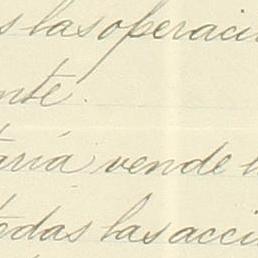 s las operaci
nte.
taria vende l
todas las acci